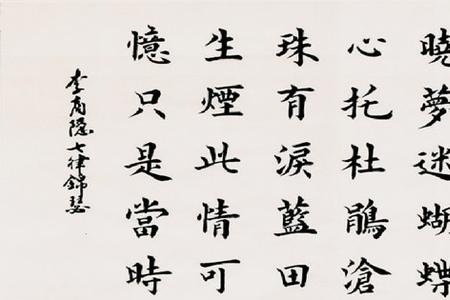 曉夢迷蝴蝶
心托杜鵑滄
珠有淚藍田
生煙此情可
憶只是當時
李商隱七律錦瑟